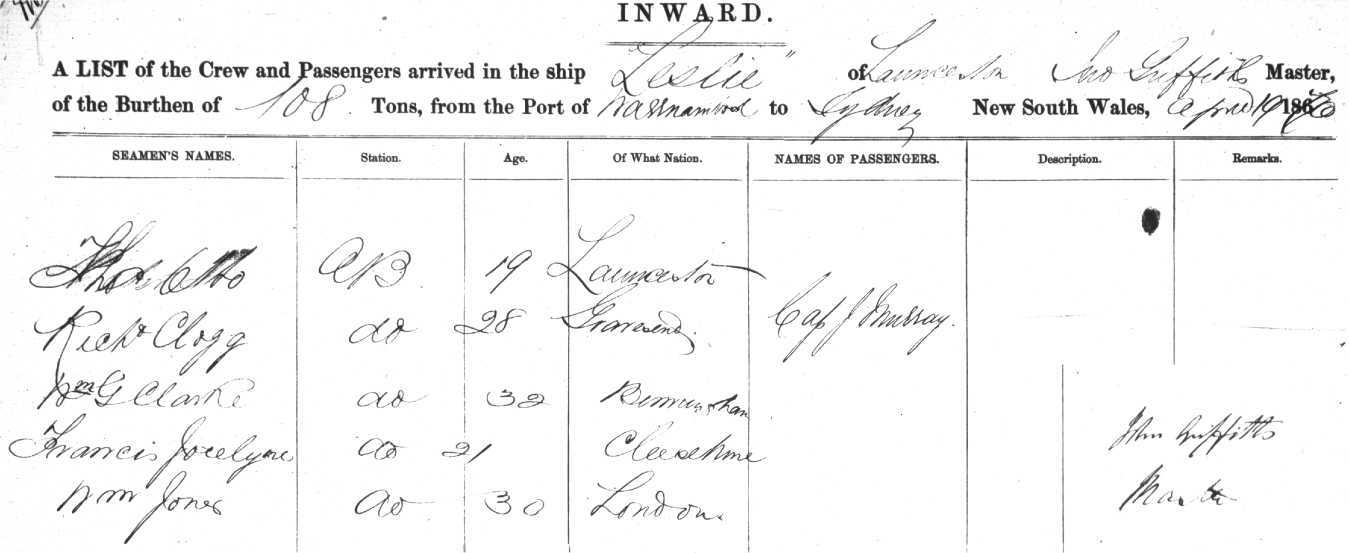 INWARD.
A LIST of the Crew and Passengers arrived in the ship "Leslie" of Launceston Jno Griffiths Master,
of the Burthen of 108 Tons, from the Port of Warrnambool to Sydney New South Wales, April 19 1876
SEAMEN'S NAMES. Station. Age. Of What Nation. NAMES OF PASSENGERS. Description. Remarks.
Thos Otto AB 19 Launceston
Richd Clogg do 28 Gravesend Cap J Murray.
Wm G Clarke do 32
Francis Jocelyne do 21 John Griffiths
Wm Jones do 30 London Master